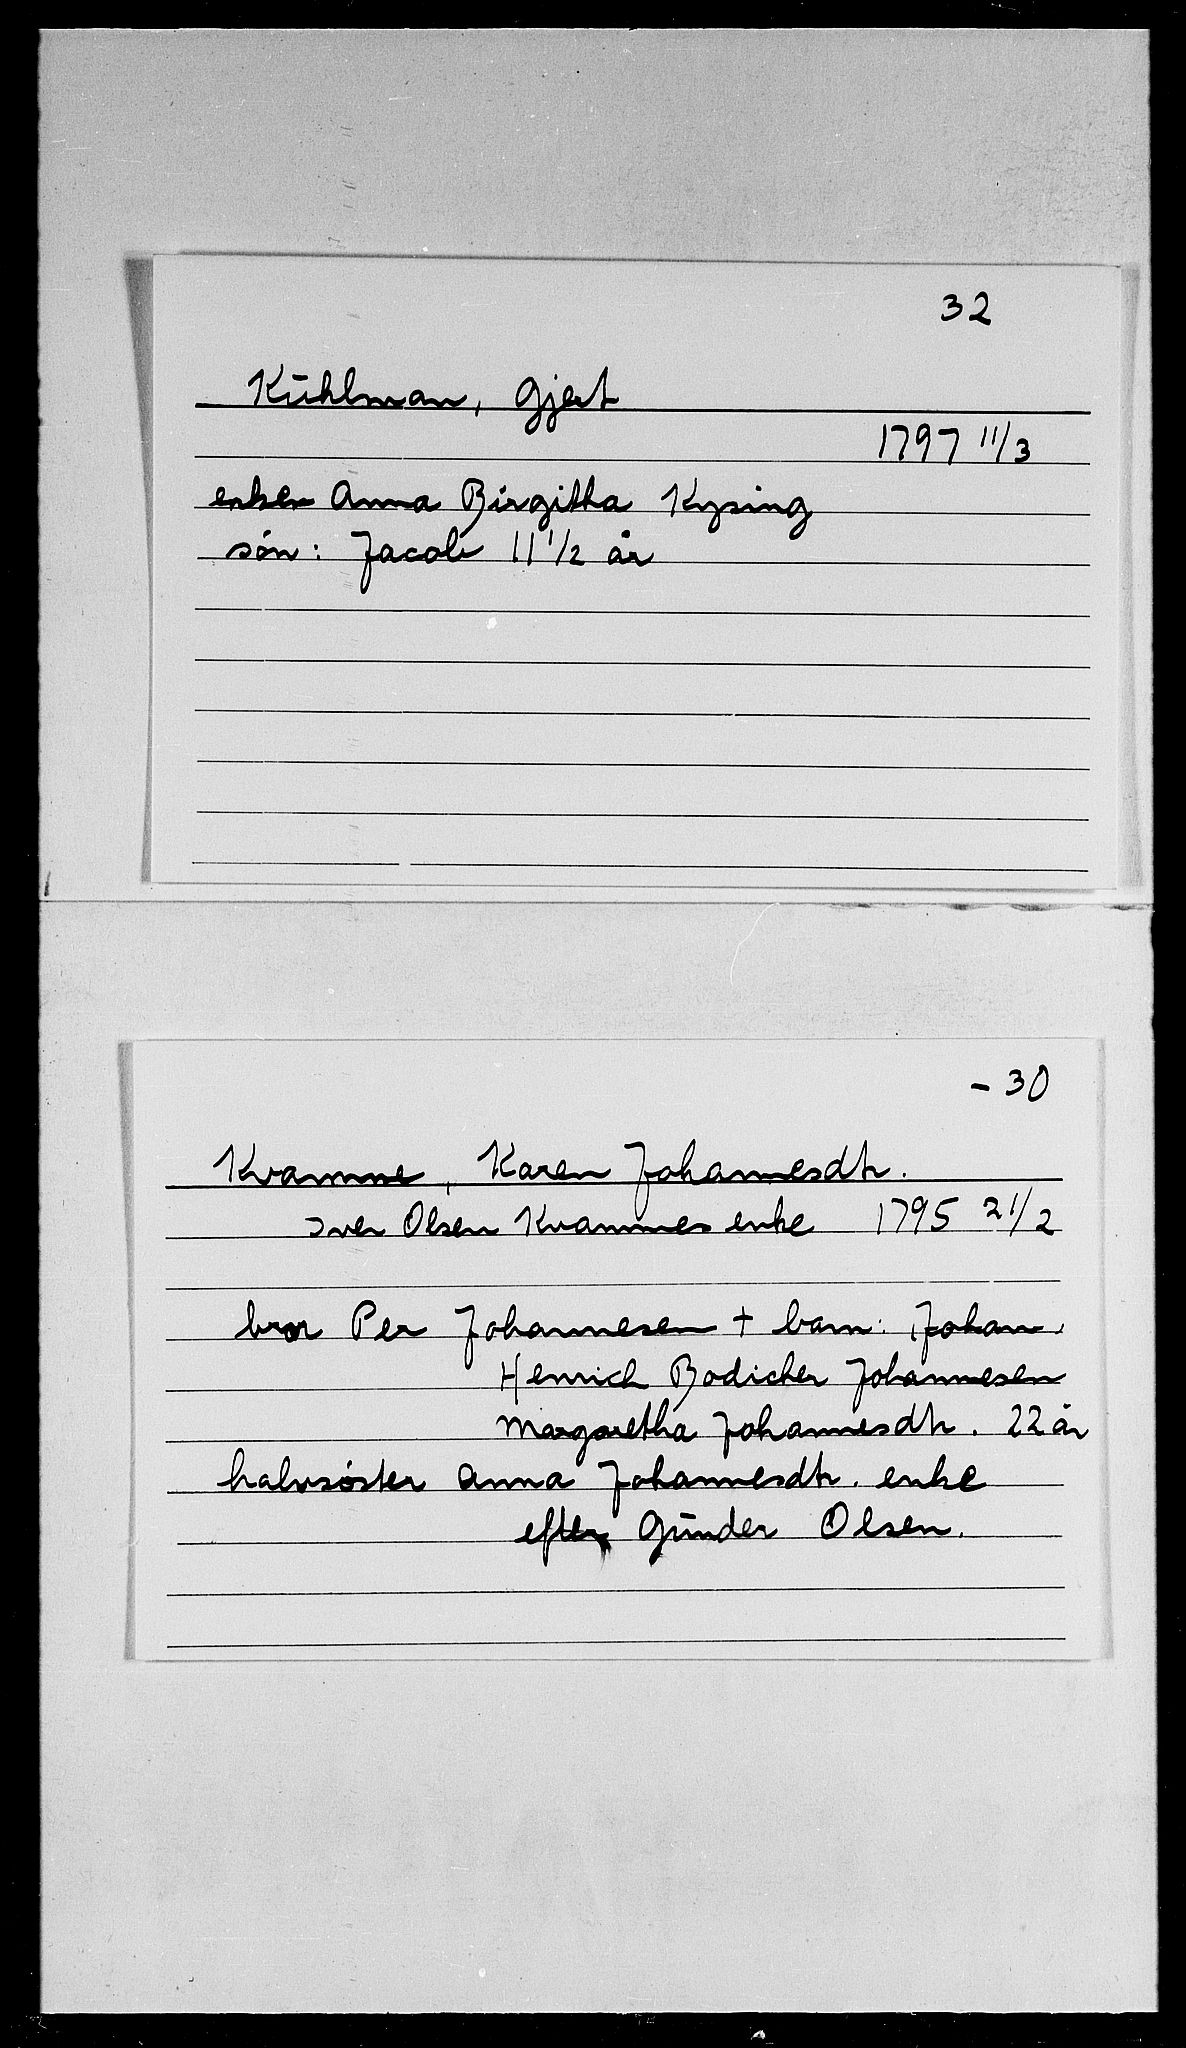 32
Kühlman, Gjert
1797 11/3
enken Anna Birgitha Kysing
søn: Jacob 11 1/2 år
- 30
Kvamme, Karen Johannesdtr.
Iver Olsen Kvammes enke 1795 21/2
bror Per Johannesen + barn: Johan
Henrich Bodicher Johannesen
Margaretha Johannesdtr. 22 år
halvsøster Anna Johannesdtr. enke
efter Gunder Olsen.